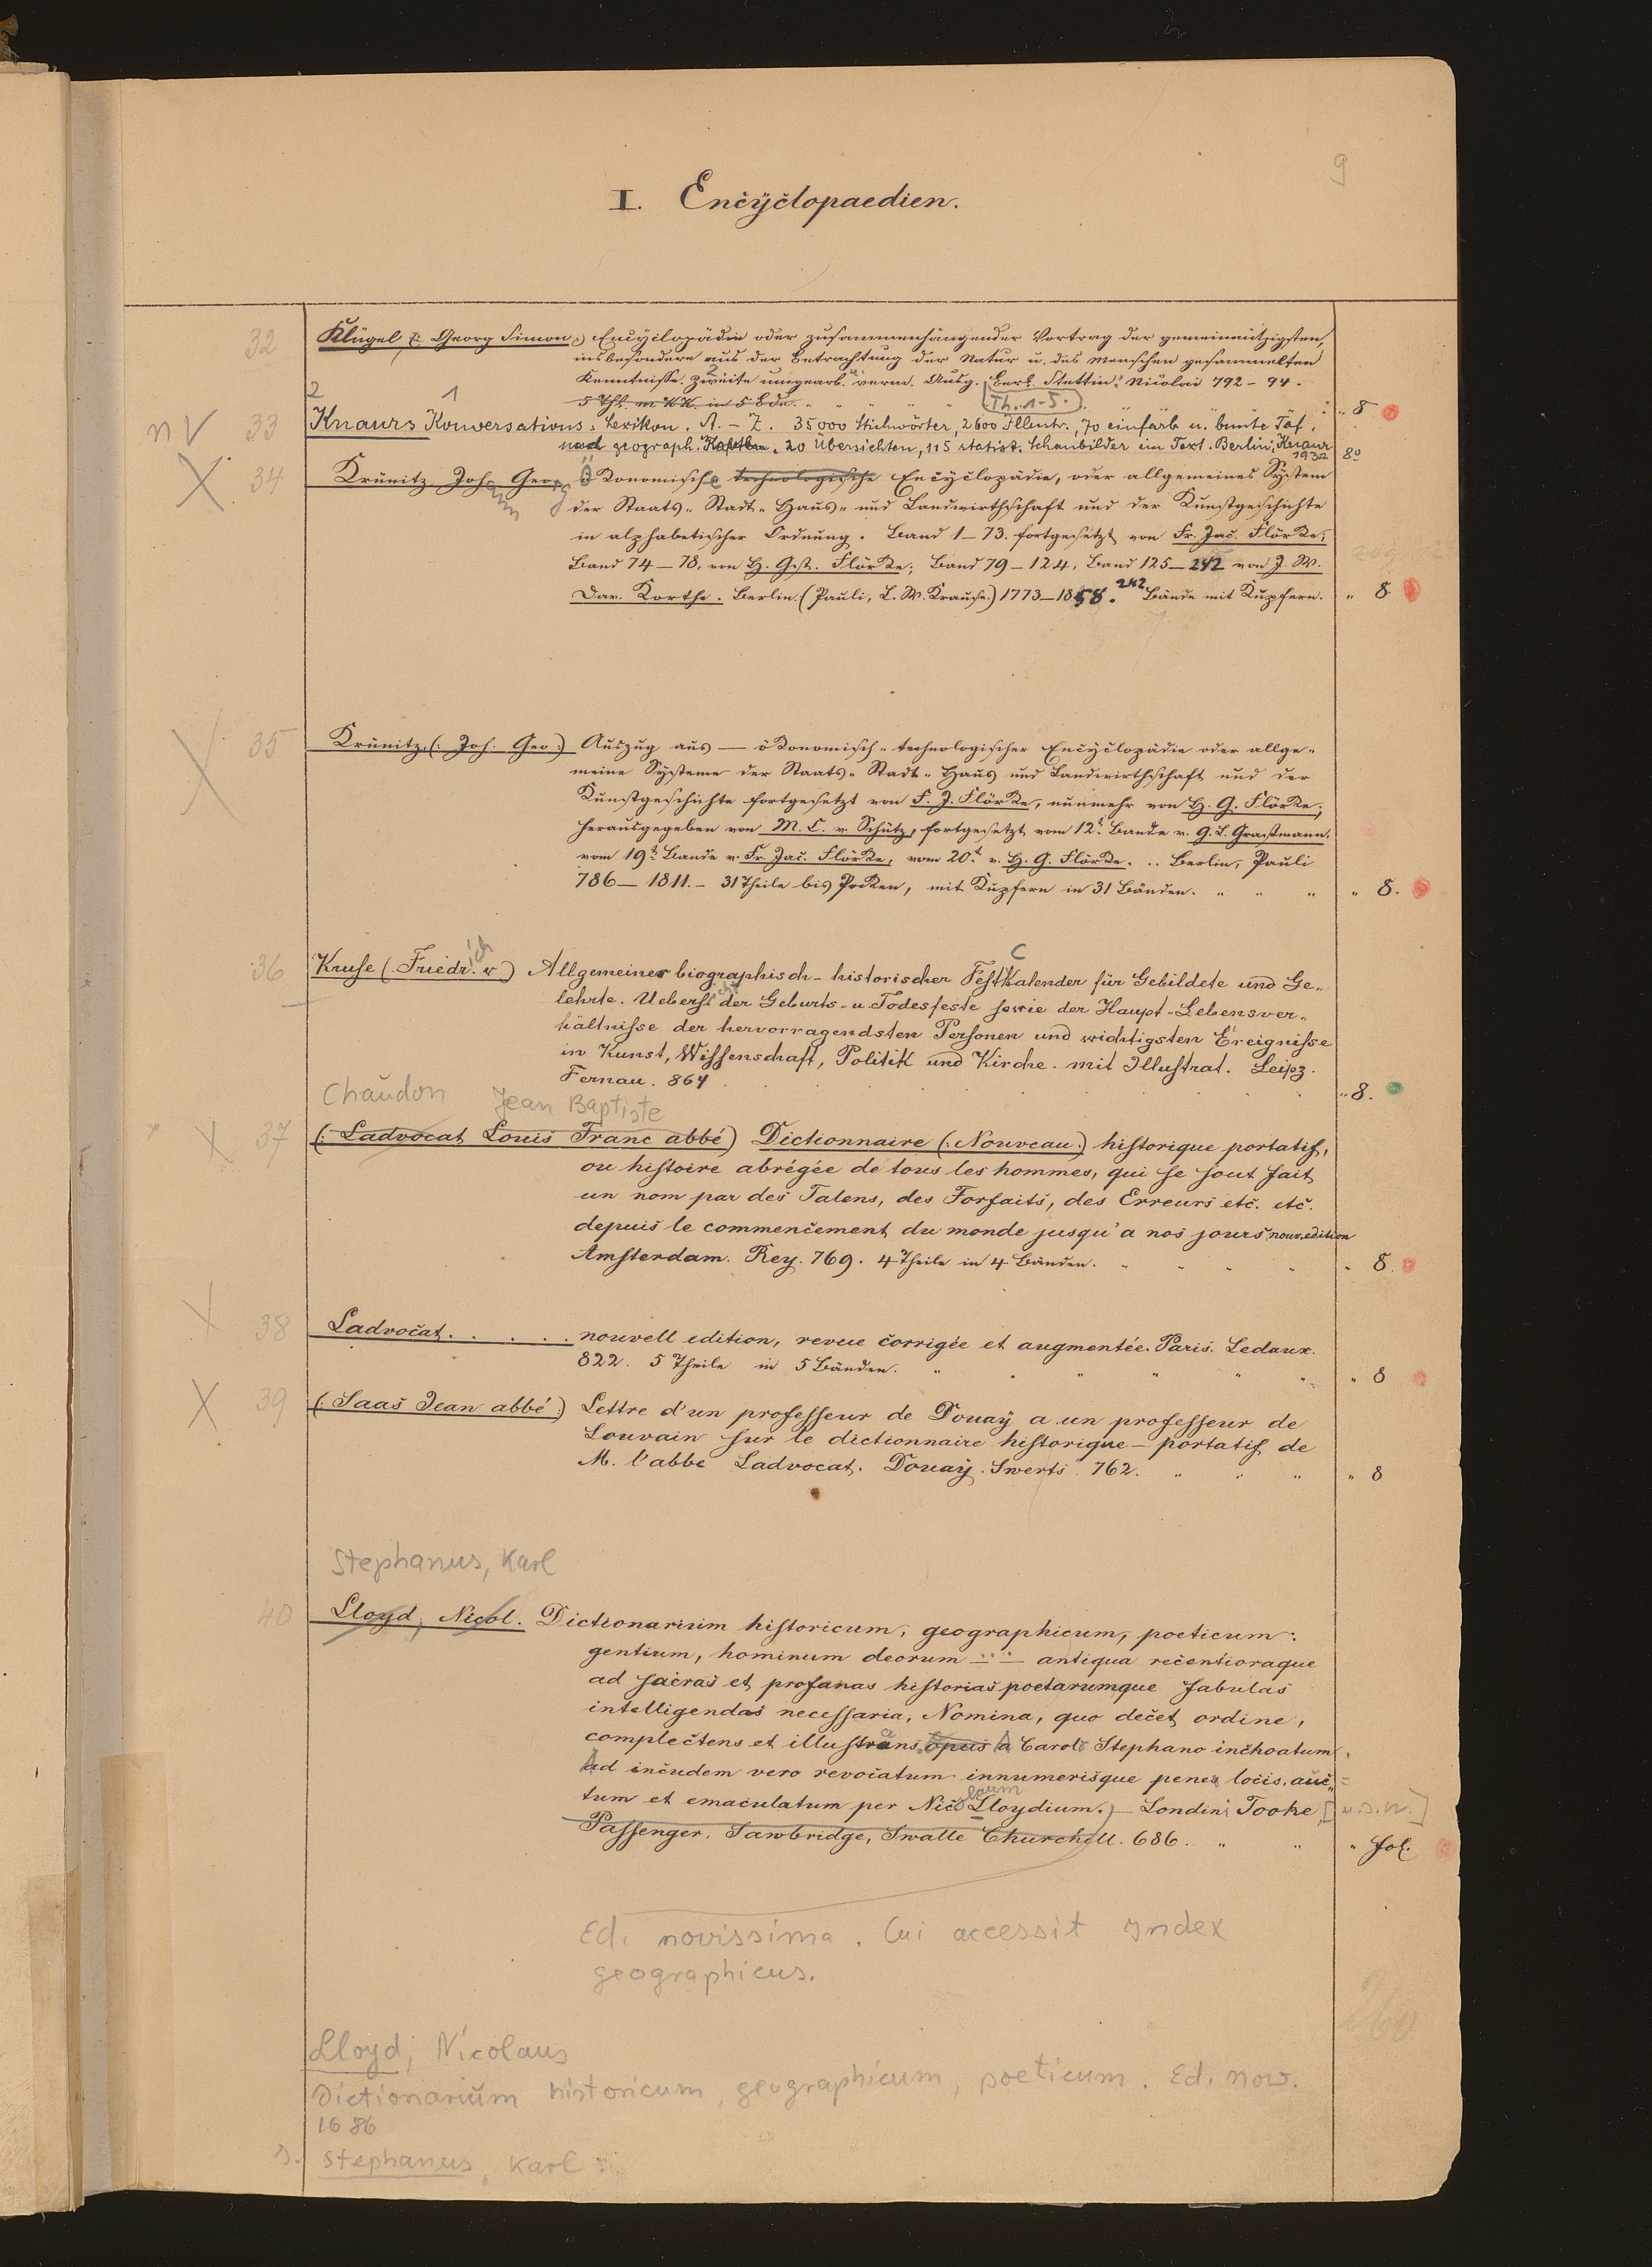 9
I. Encÿclopaedien.
32 Klügel (: Georg Simon :) Encÿclopädie oder zusammenhängender Vortrag der gemeinnützigsten,
insbesondere aus der Betrachtung der Natur u. des Menschen gesammelten
Kenntnisse. Zweite umgearb. u. verm. Ausg. Berl. Stettin: Nicolai 792–94.
5 Thl. m. KK. in 5 Bdn. Th. 1-5. „ 8
2 1
n V 33 Knaurs Konversations-Lexikon. A.–Z. 35000 Stichwörter, 2600 Illustr., 70 einfarb u. bunte Taf.
und geograph. Karten. 20 Übersichten, 115 statist. Schaubilder im Text. Berlin: Knaur 1932 8°
X 34 Krünitz Johann Georg Ökonomische technologische Encÿclopädie, oder allgemeines Sÿstem
der Staats- Stadt- Haus- und Landwirthschaft und der Kunstgeschichte
in alphabetischer Ordnung. Band 1–73. fortgesetzt von Fr. Jac. Flörke;
Band 74–78, von H. Gst. Flörke; Band 79–124, Band 125–242 von J. W.
Dav. Korthe. Berlin. (Pauli, L. W. Krause.) 1773–1858. 242 Bände mit Kupfern. „ 8
X 35 Krünitz (: Joh. Geo :) Auszug aus — ökonomisch-technologischer Encÿclopädie oder allge-
meine Sÿsteme der Staats- Stadt- Haus und Landwirthschaft und der
Kunstgeschichte fortgesetzt von F. J. Flörke, nunmehr von H. G. Flörke;
herausgegeben von M. C. v. Schütz, fortgesetzt vom 12t. Bande v. G. L. Grassmann.
vom 19t. Bande v. Fr. Jac. Flörke, vom 20t. v. H. G. Flörke. .. Berlin, Pauli
786–1811.– 31 Theile bis Pocken, mit Kupfern in 31 Bänden. „ 8.
36 Kruse (. Friedrich v) Allgemeiner biographisch-historischer FestKalender für Gebildete und Ge-
lehrte. Uebersicht der Geburts- u. Todesfeste sowie der Haupt-Lebensver-
hältnisse der hervorragendsten Personen und wichtigsten Ereignisse
in Kunst, Wissenschaft, Politik und Kirche. mit Illustrat. Leipz.
Fernau. 864 „ 8.
Chaudon Jean Baptiste
X 37 (: Ladvocat Louis Franc abbé) Dictionnaire (: Nouveau :) historique portatif,
ou histoire abrégée de tous les hommes, qui se sout fait
un nom par des Talens, des Forfaits, des Erreurs etc. etc.
depuis le commencement du monde jusqu'a nos jours nouv. edition
Amsterdam. Rey. 769. 4 Theile in 4 Bänden. „ 8.
X 38 Ladvocat. . . . . . nouvell edition, revue corrigée et augmentée. Paris. Ledaux.
822. 5 Theile in 5 Bänden. „ 8
X 39 (: Saas Jean abbé :) Lettre d'un professeur de Douaÿ a un professeur de
Louvain sur le dictionnaire historique–portatif de
M. l'abbe Ladvocat. Douaÿ. Swerts. 762. „ 8
Stephanus, Karl
40 Lloyd, Nicol. Dictionarium historicum, geographicum, poeticum:
gentium, hominum deorum — antiqua recentioraque
ad sacras et profanas historias poetarumque fabulas
intelligendas necessaria, Nomina, quo decet ordine,
complectens et illustrans opus a Carolo Stephano inchoatum
ad incudem vero revocatum innumerisque penes locis, auc-
tum et emaculatum per Nicolaum Lloydium.) – Londini Tooke [u.s.w.]
Passenger. Sawbridge, Swalle Churchill. 686. „ fol.
Ed. novissima. Cui accessit Index
geographicus.
Lloyd, Nicolaus
Dictionarium historicum, geographicum, poeticum. Ed. nov.
1686
s. Stephanus, Karl.